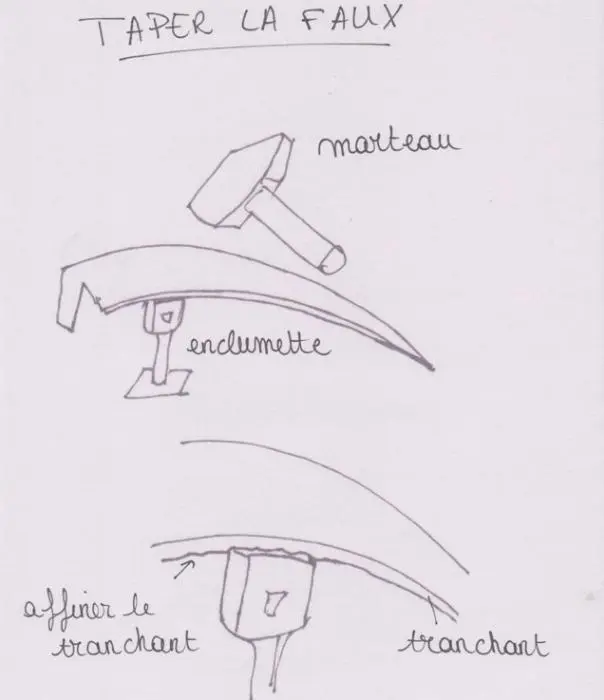 TAPER LA FAUX
marteau
enclumette
affiner le
tranchant
tranchant